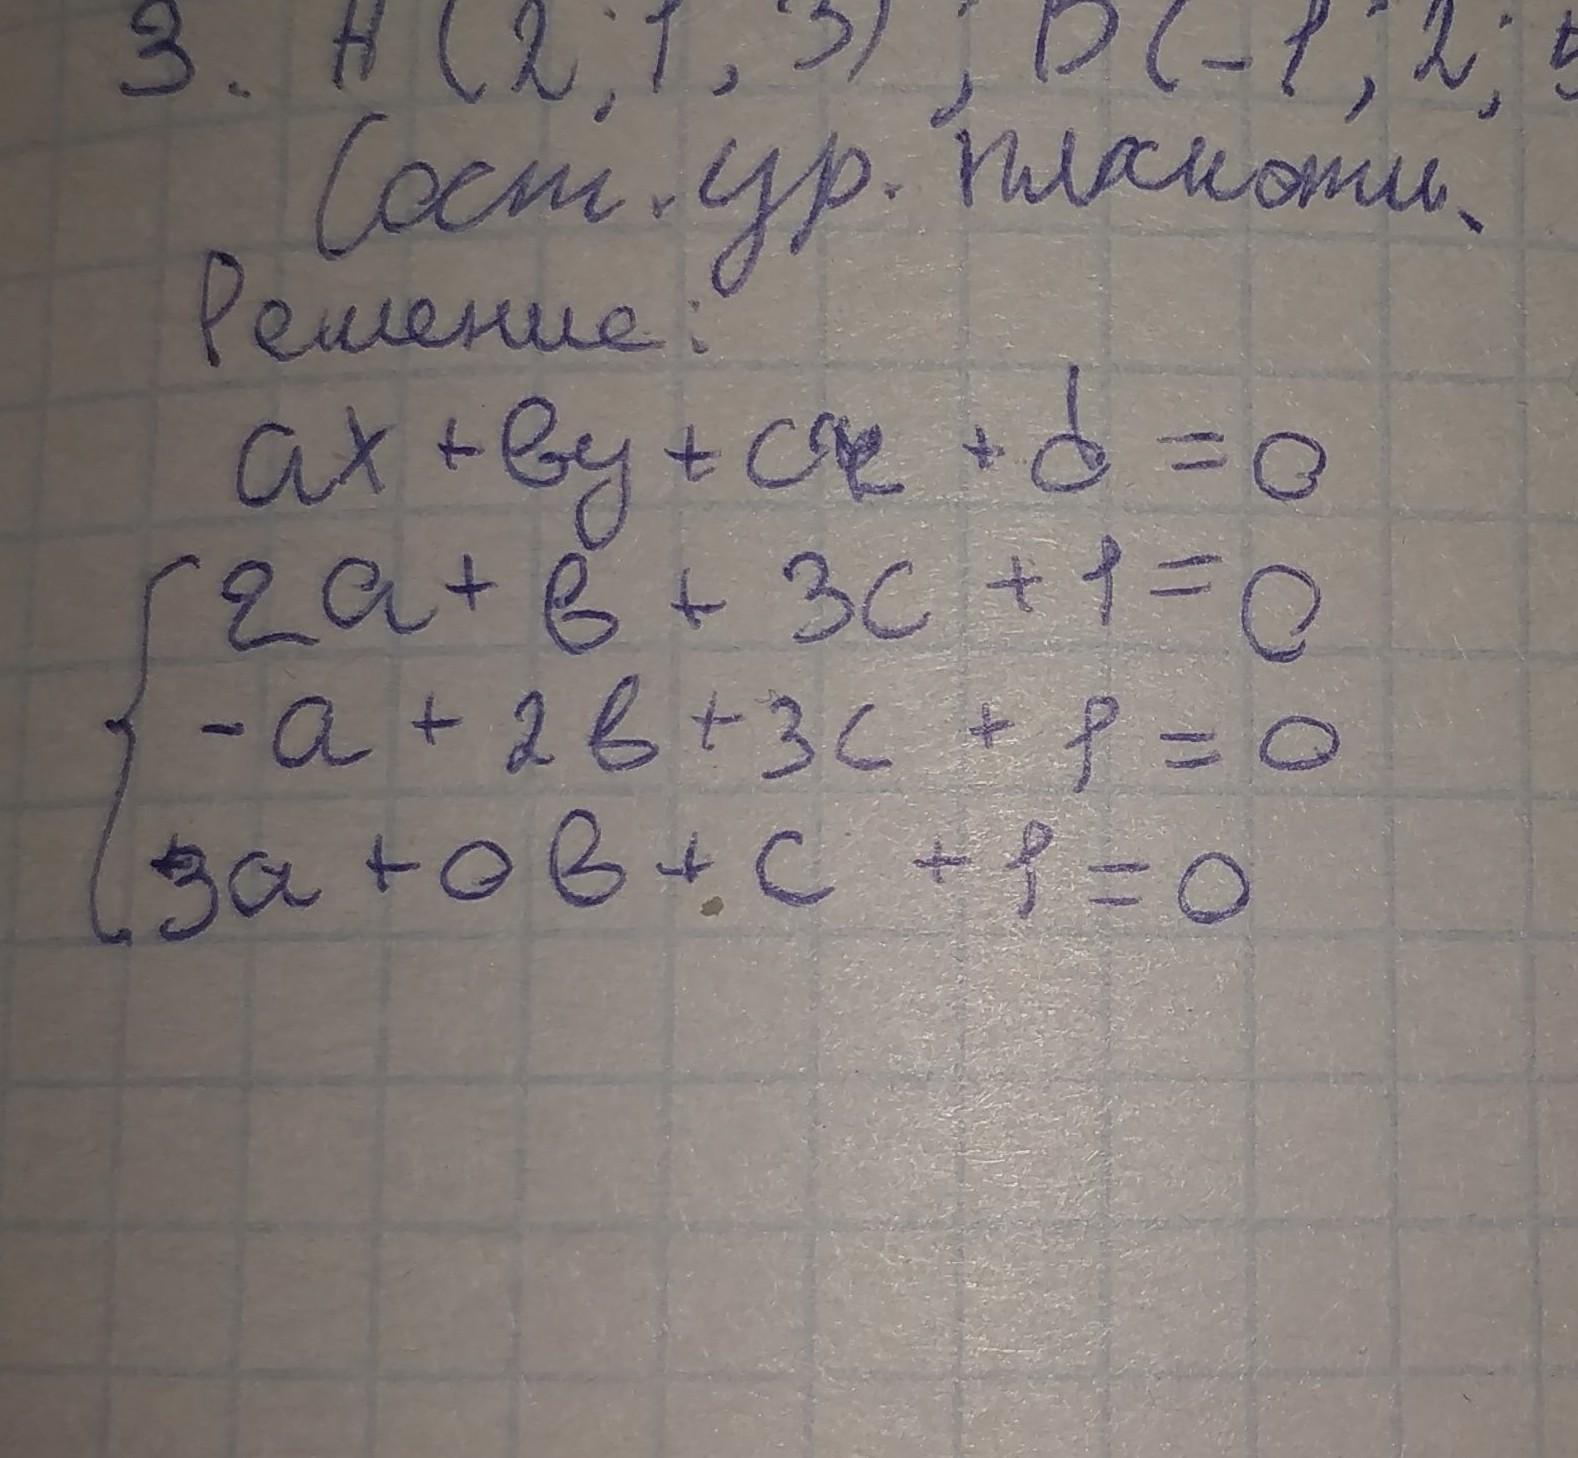 3. A(2;1,3); B(-1;2;5
Сост. ур. плскоти.
Решение:
ax + вy + cz + d = 0
2a + в + 3c + 1 = 0
-a + 2в + 3c + 1 = 0
3a + 0в + c + 1 = 0